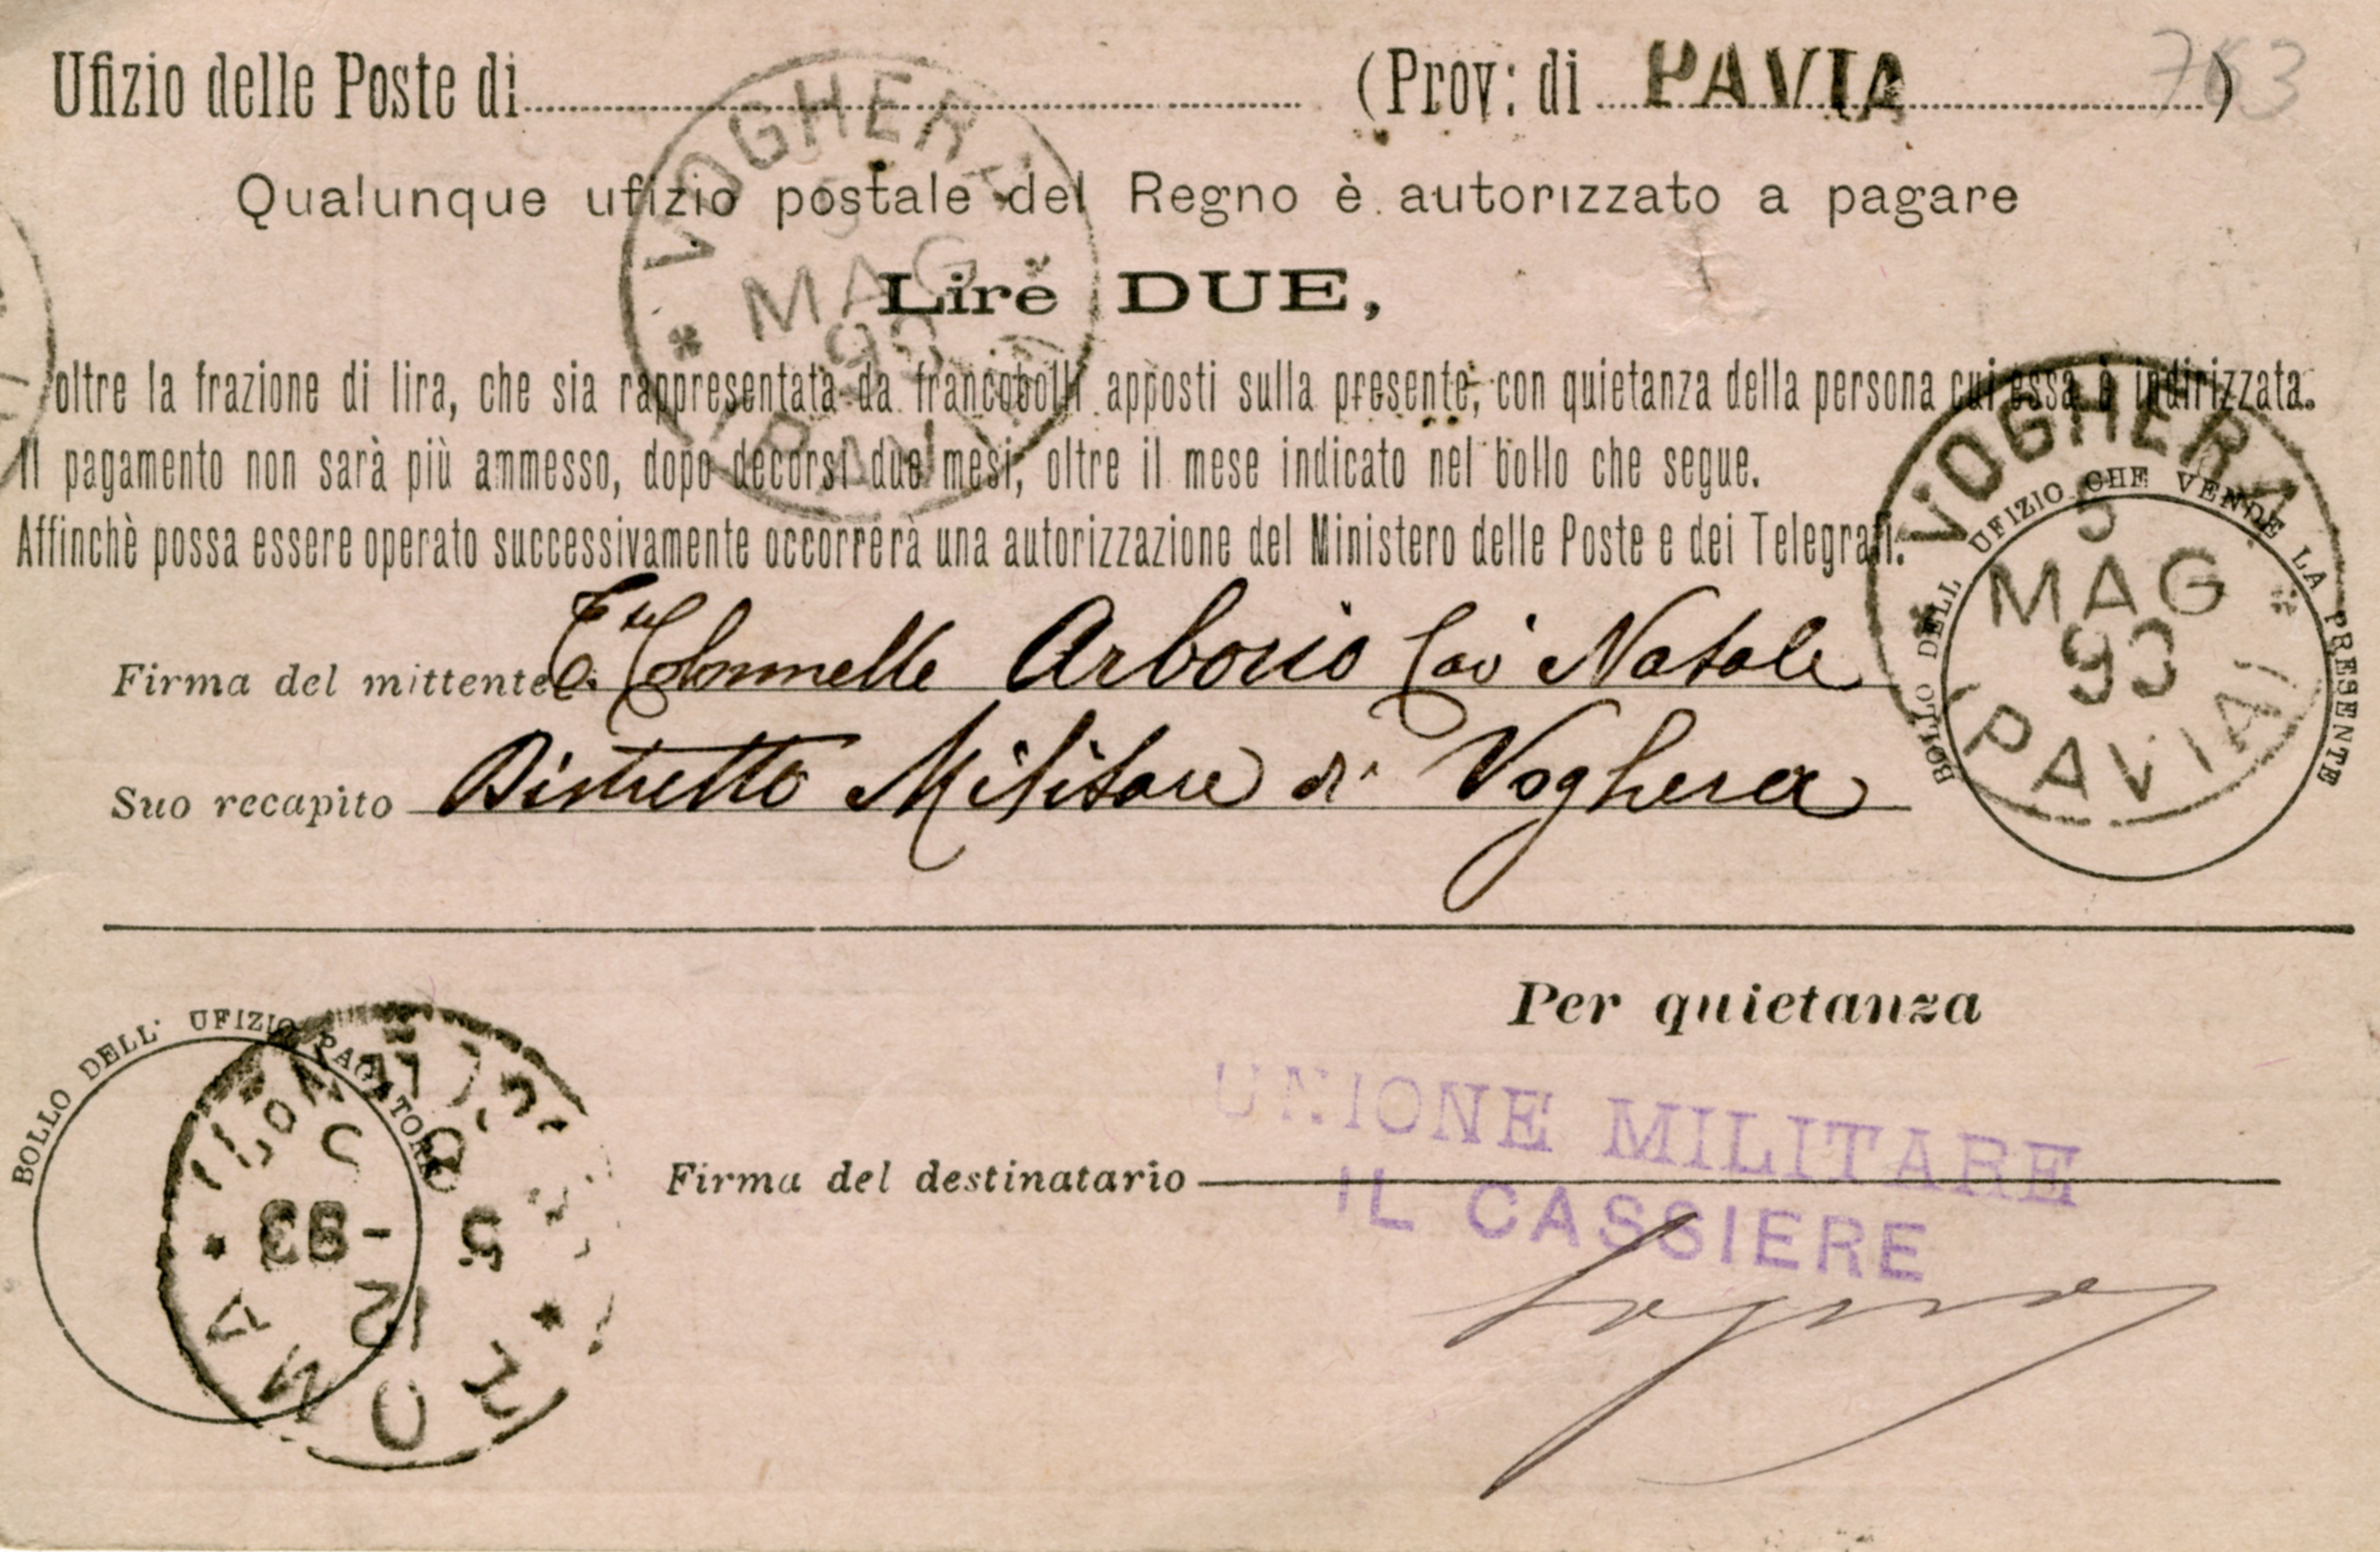 Ufizio delle Poste di (Prov: di PAVIA)
763
VOGHERA
5
MAG
93
(PAVIA)
Qualunque ufizio postale del Regno è autorizzato a pagare
Lire DUE,
oltre la frazione di lira, che sia rappresentata da francobolli apposti sulla presente, con quietanza della persona cui essa è indirizzata.
Il pagamento non sarà più ammesso, dopo decorsi due mesi, oltre il mese indicato nel bollo che segue.
Affinchè possa essere operato successivamente occorrerà una autorizzazione del Ministero delle Poste e dei Telegrafi.
Firma del mittente Colonnello Arborio Cav Natale
Suo recapito Distretto Militare di Voghera
BOLLO DELL UFIZIO CHE VENDE LA PRESENTE
VOGHERA
5
MAG
93
(PAVIA)
Per quietanza
BOLLO DELL' UFIZIO PAGATORE
ROMA
5
12
- 93
UNIONE MILITARE
Firma del destinatario
IL CASSIERE